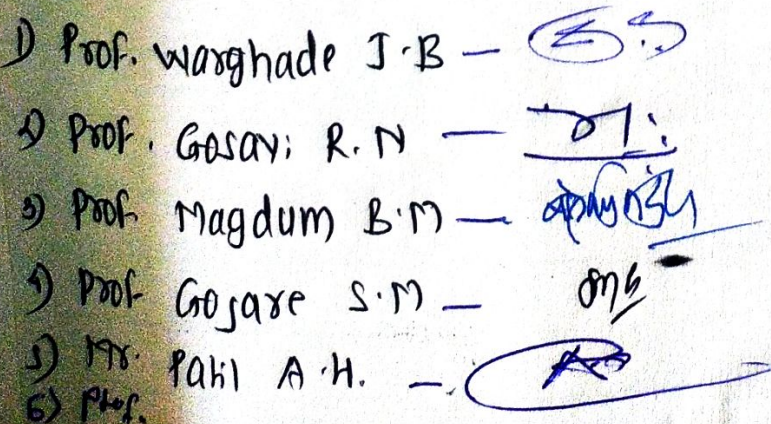 1) Prof. Warghade J.B —
2) Prof. Gosavi R.N —
3) Prof. Magdum B.M —
4) Prof. Gojare S.M —
5) Mr. Patil A.H. —
6) Prof.